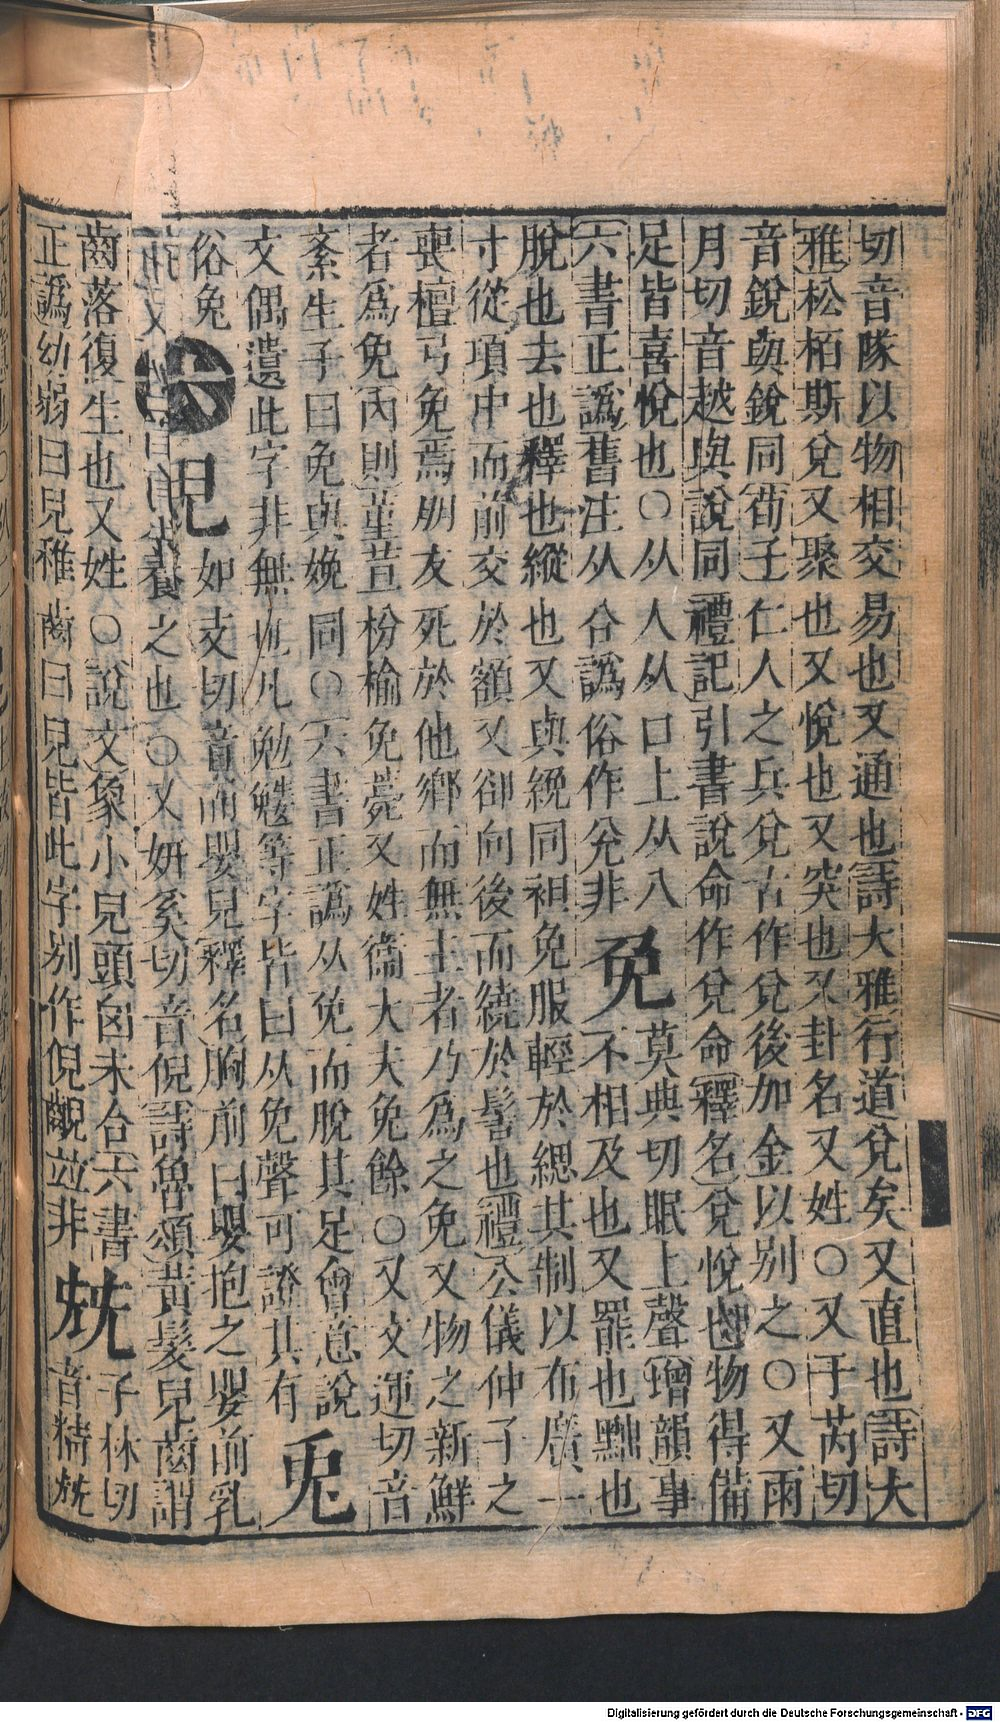 切音隊以物相交易也又通也詩大雅行道兌矣又直也詩大
雅松柏斯兌又聚也又悅也又突也又卦名又姓○又于芮切
音銳與銳同荀子仁人之兵兌古作兌後加金以別之○又雨
月切音越與說同禮記引書說命作兌命釋名兌悅也物得備
足皆喜悅也○从人从口上从八
六書正譌舊注从㕣譌俗作兊非免莫典切眠上聲增韻事不相及也又罷也黜也
脫也去也釋也縱也又與絻同袒免服輕於緦其制以布廣一
寸從項中而前交於額又卻向後而繞於髻也禮公儀仲子之
喪檀弓免焉朋友死於他鄉而無主者乃為之免又物之新鮮
者為免內則菫荁枌榆免薧又姓衞大夫免餘○又文運切音
紊生子曰免與娩同○六書正譌从兔而脫其足會意說
文偶遺此字非無也凡勉鮸等字皆曰从免聲可證其有兎
俗兔兒如支切音而嬰兒釋名胸前曰嬰抱之嬰前乳
養之也○又妍奚切音倪詩魯頌黃髮兒齒謂
齒落復生也又姓○說文象小兒頭囟未合六書
正譌幼弱曰兒稚齒曰兒皆此字別作倪齯並非兟子林切音精兟
Digitalisierung gefördert durch die Deutsche Forschungsgemeinschaft - DFG